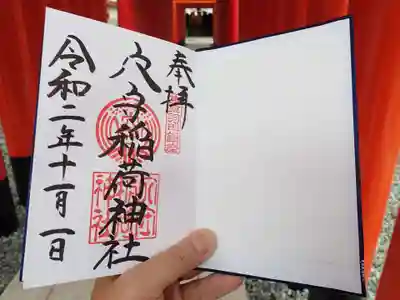 奉拝
穴守稲荷神社
令和二年十一月一日